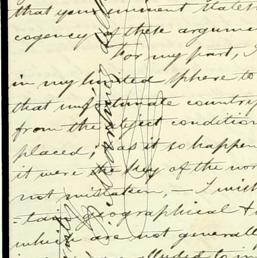 that your eminent States
cogency of these argume
For my part, I
in my limited sphere to
that unfortunate country
from the abject condition
placed; as it so happen
it were the key of the wor
not mistaken, – I wish
geographical &
which are not generall
alluded to in